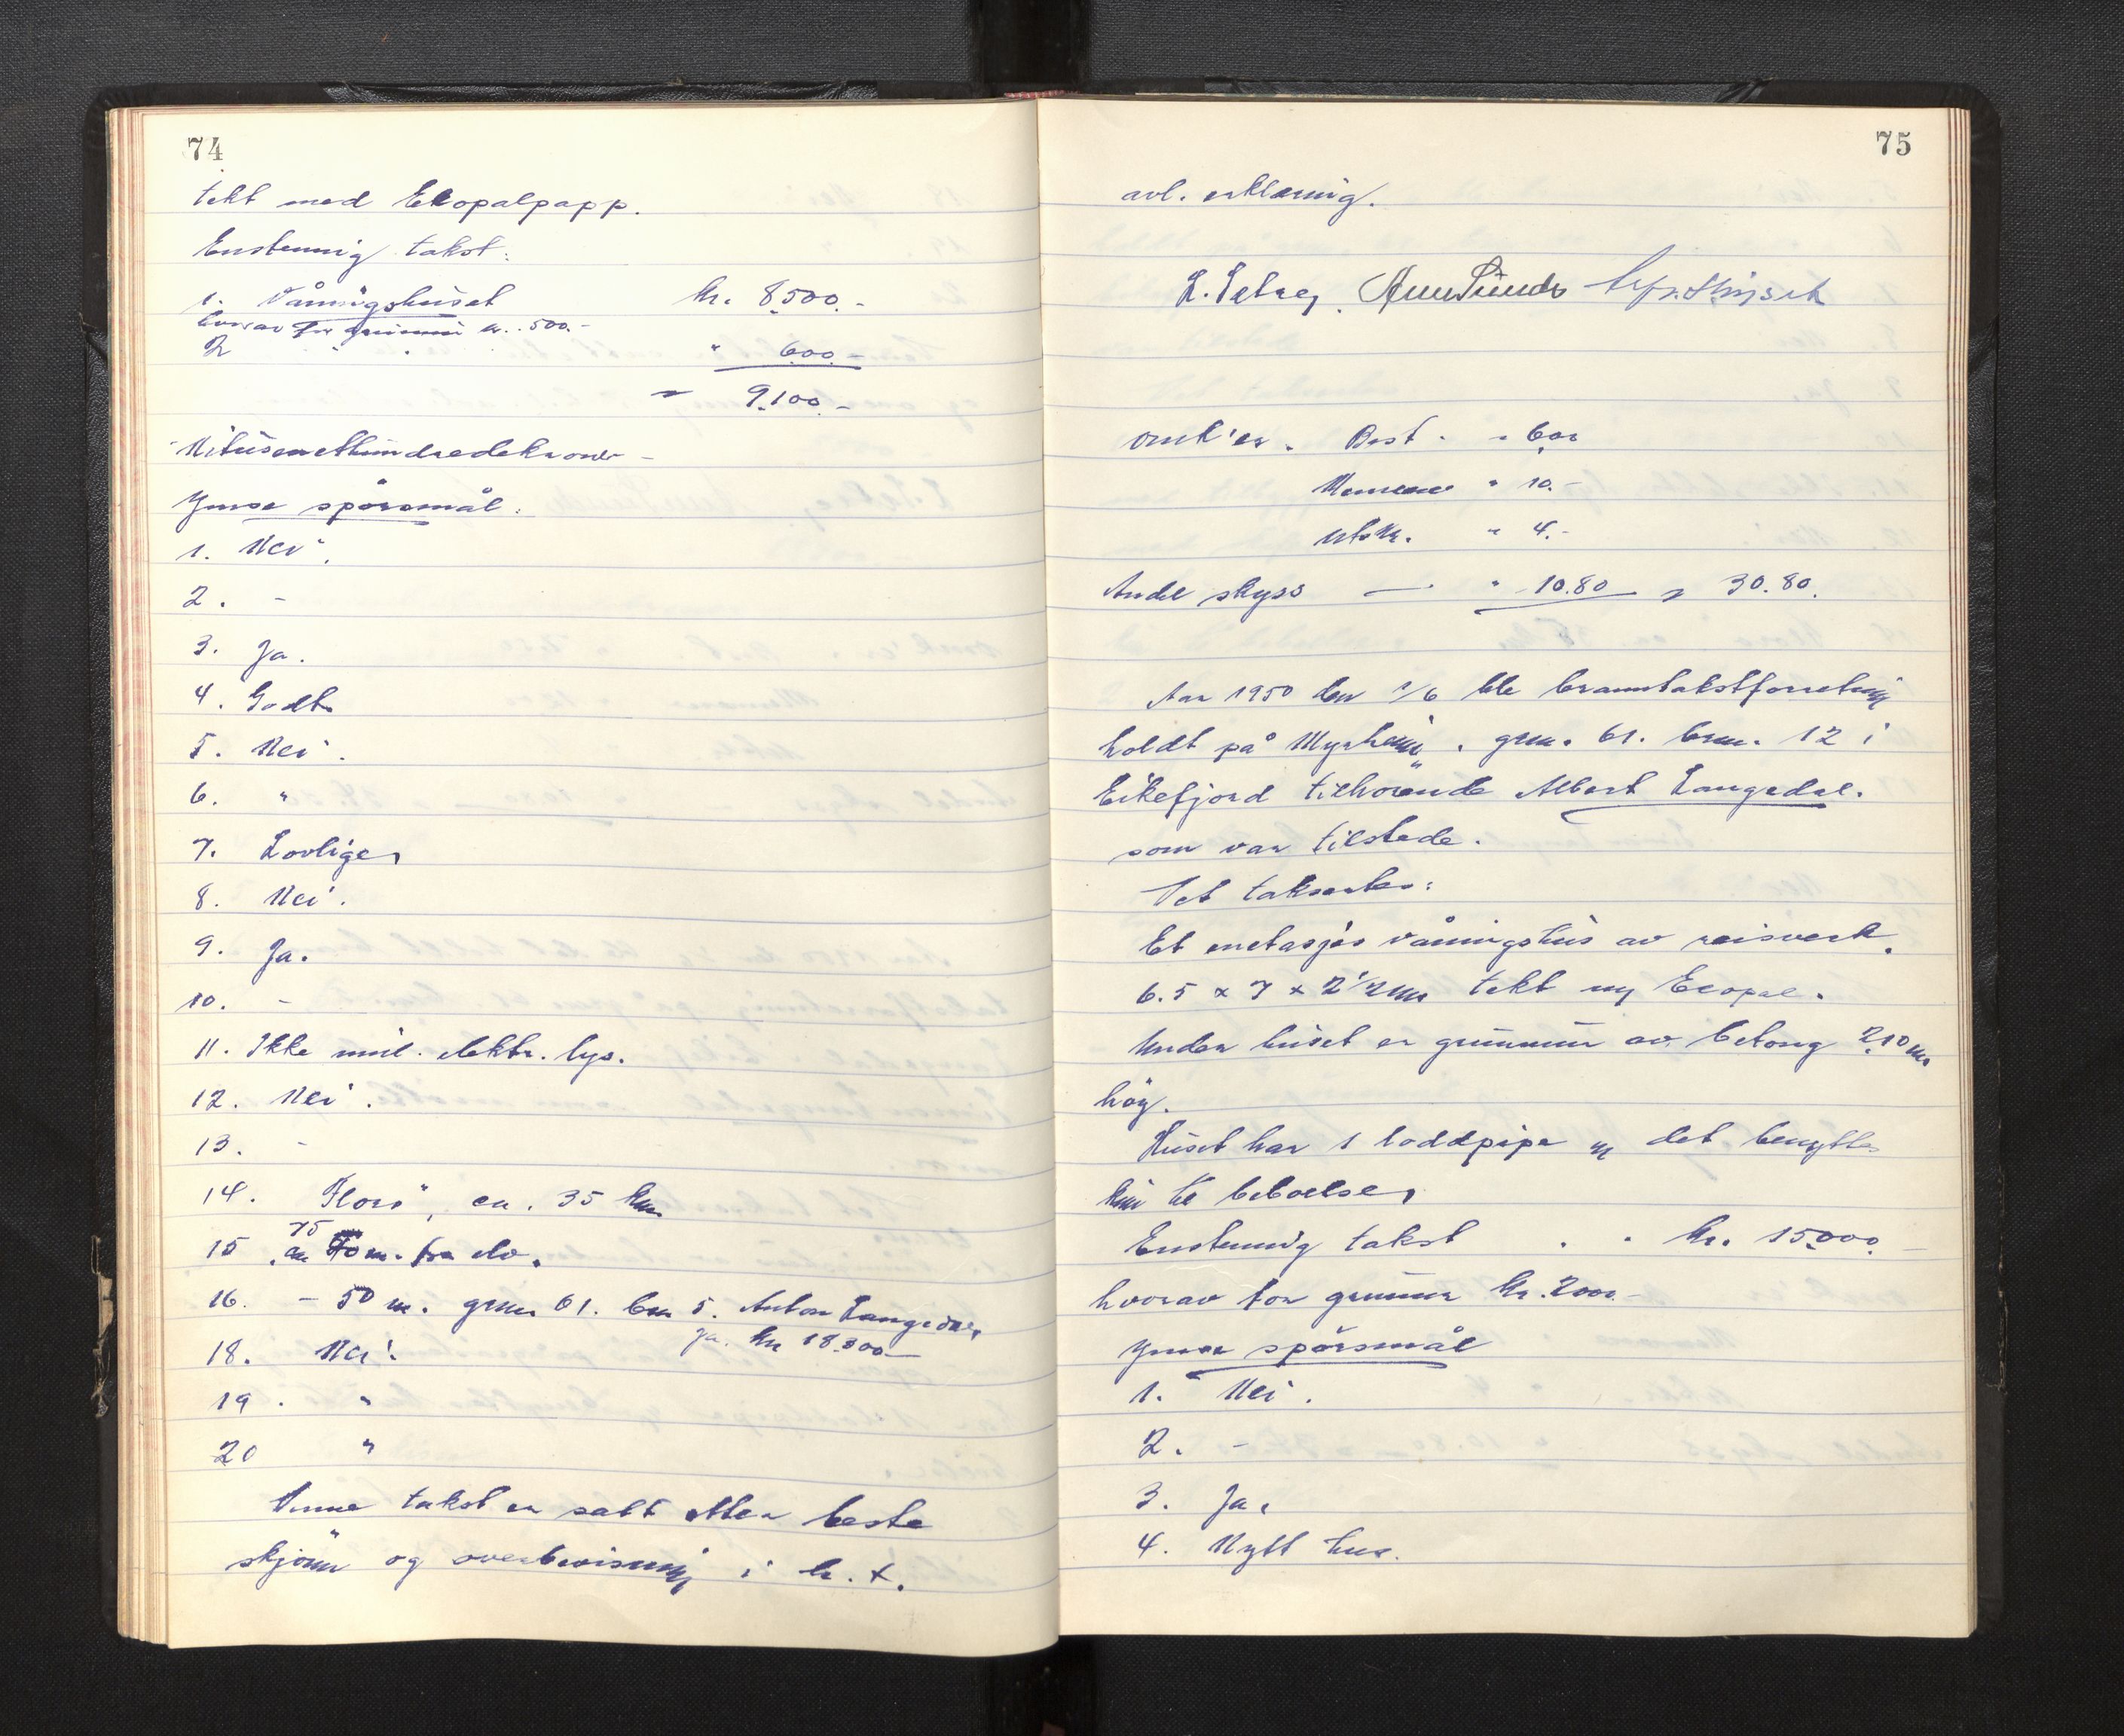 74
tekt med Ekopalpapp.
Enstemmig takst:
1. Våningshuset kr. 8500.-
hvorav for grunnmur kr. 500.-
2 " 600.-
" 9.100.-
Nitusenetthundredekroner -
Ymse spörsmål:
1. Nei.
2. -
3. Ja.
4. Godt
5. Nei.
6. "
7. Lovlige
8. Nei.
9. Ja.
10. -
11. Ikke innl. elektr. lys.
12. Nei.
13. -
14. Florö, ca. 35 km
75
15. ca m. fra elv.
16. - 50 m. grnr 61. bnr 5. Anton Langedal,
ja. kr 18.300-
18. Nei.
19. "
20 "
Denne takst er satt etter beste
skjönn og overbevisning i h. t.
75
avl. erklæring.
omk'er. Best. " 6.00
Mennene " 10.-
Utskr. " 4.-
Andel skyss — " 10.80 " 30.80.
Aar 1950 den /6 ble branntakstforretning
holdt på Myrheim, grnr. 61. bnr. 12 i
Eikefjord tilhörende Albert Langedal.
som var tilstede.
Det takseres:
Et enetasjes våningshus av reisverk.
6.5 x 7 x 2 1/2 m tekt m/ Ecopal.
Under huset er grunnmur av betong 2.10 m
høg.
Huset har 1 loddpipe og det benyttes
kun til beboelse,
Enstemmig takst . . kr. 15.000.-
hvorav for grunnmur kr. 2000.-
Ymse spörsmål
1. Nei.
2. -
3. Ja,
4. Nytt hus.